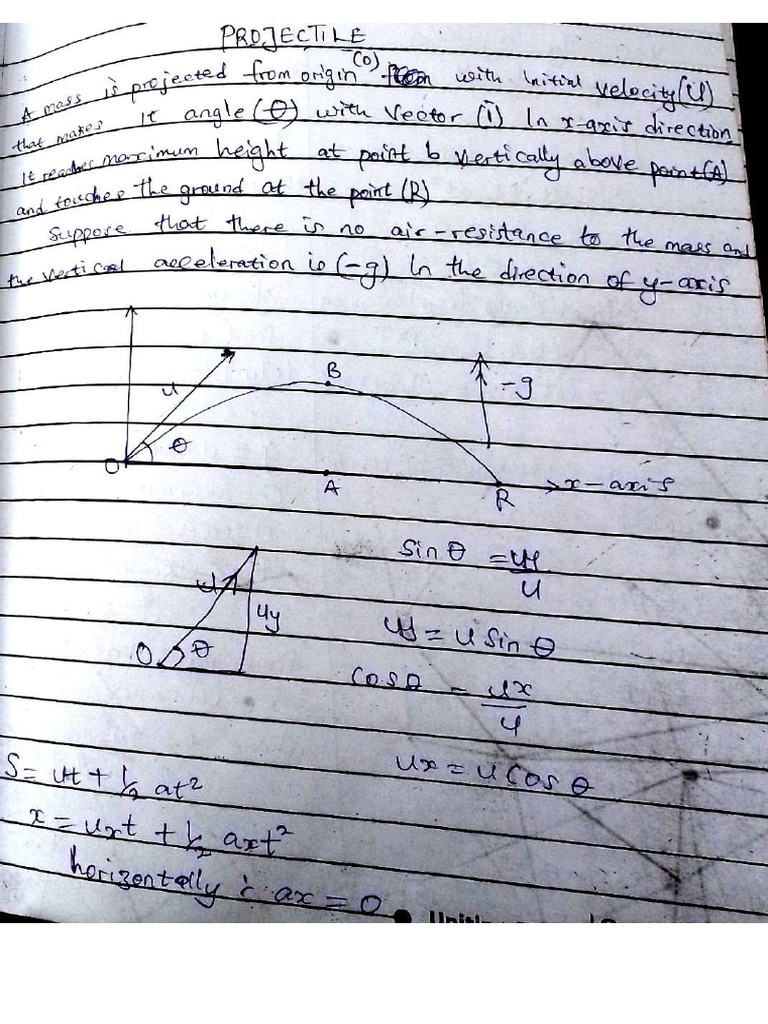 PROJECTILE
A mass is projected from origin (O) with Initial velocity (U)
that makes It angle (θ) with vector (i) In x-axis direction
It reaches maximum height at point b vertically above point (A)
and touches the ground at the point (R)
Suppose that there is no air-resistance to the mass and
the vertical acceleration is (-g) In the direction of y-axis
B
u
-g
θ
O
A
R
x-axis
Sinθ = uy/u
u
uy
O θ
uy = u Sin θ
Cosθ = ux/u
ux = u Cos θ
S = ut + 1/2 at²
x = uxt + 1/2 axt²
horizontally : ax = 0